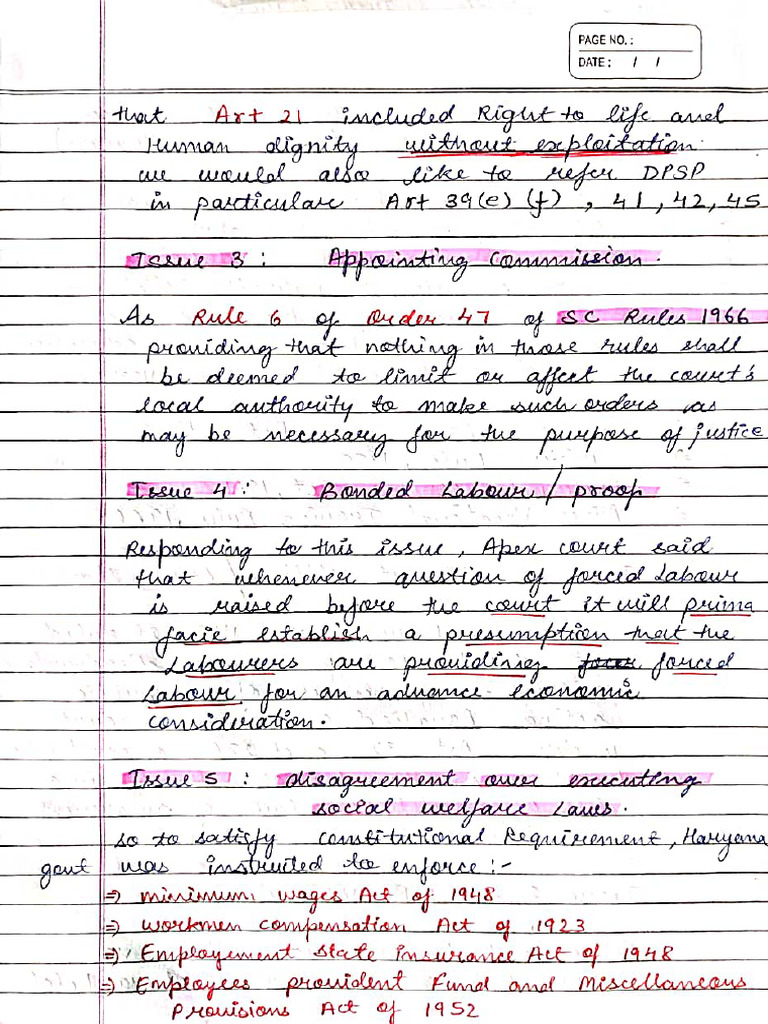 PAGE NO.:
DATE: / /
that Art 21 included Right to life and
Human dignity without exploitation.
we would also like to refer DPSP
in particular Art 39(e) (f) , 41, 42, 45
Issue 3 : Appointing Commission.
As Rule 6 of Order 47 of SC Rules 1966
providing that nothing in those rules shall
be deemed to limit or affect the court's
local authority to make such orders as
may be necessary for the purpose of justice
Issue 4 : Bonded Labour / proof
Responding to this issue, Apex court said
that whenever question of forced Labour
is raised before the court it will prima
facie establish a presumption that the
Labourers are providing forced
Labour for an advance economic
consideration.
Issue 5 : disagreement over executing
social welfare Laws.
so to satisfy constitutional Requirement, Haryana
govt was instruited to enforce :-
⇒ minimum wages Act of 1948
⇒ workmen compensation Act of 1923
⇒ Employement State insurance Act of 1948
⇒ Employees provident Fund and Miscellaneous
Provisions Act of 1952